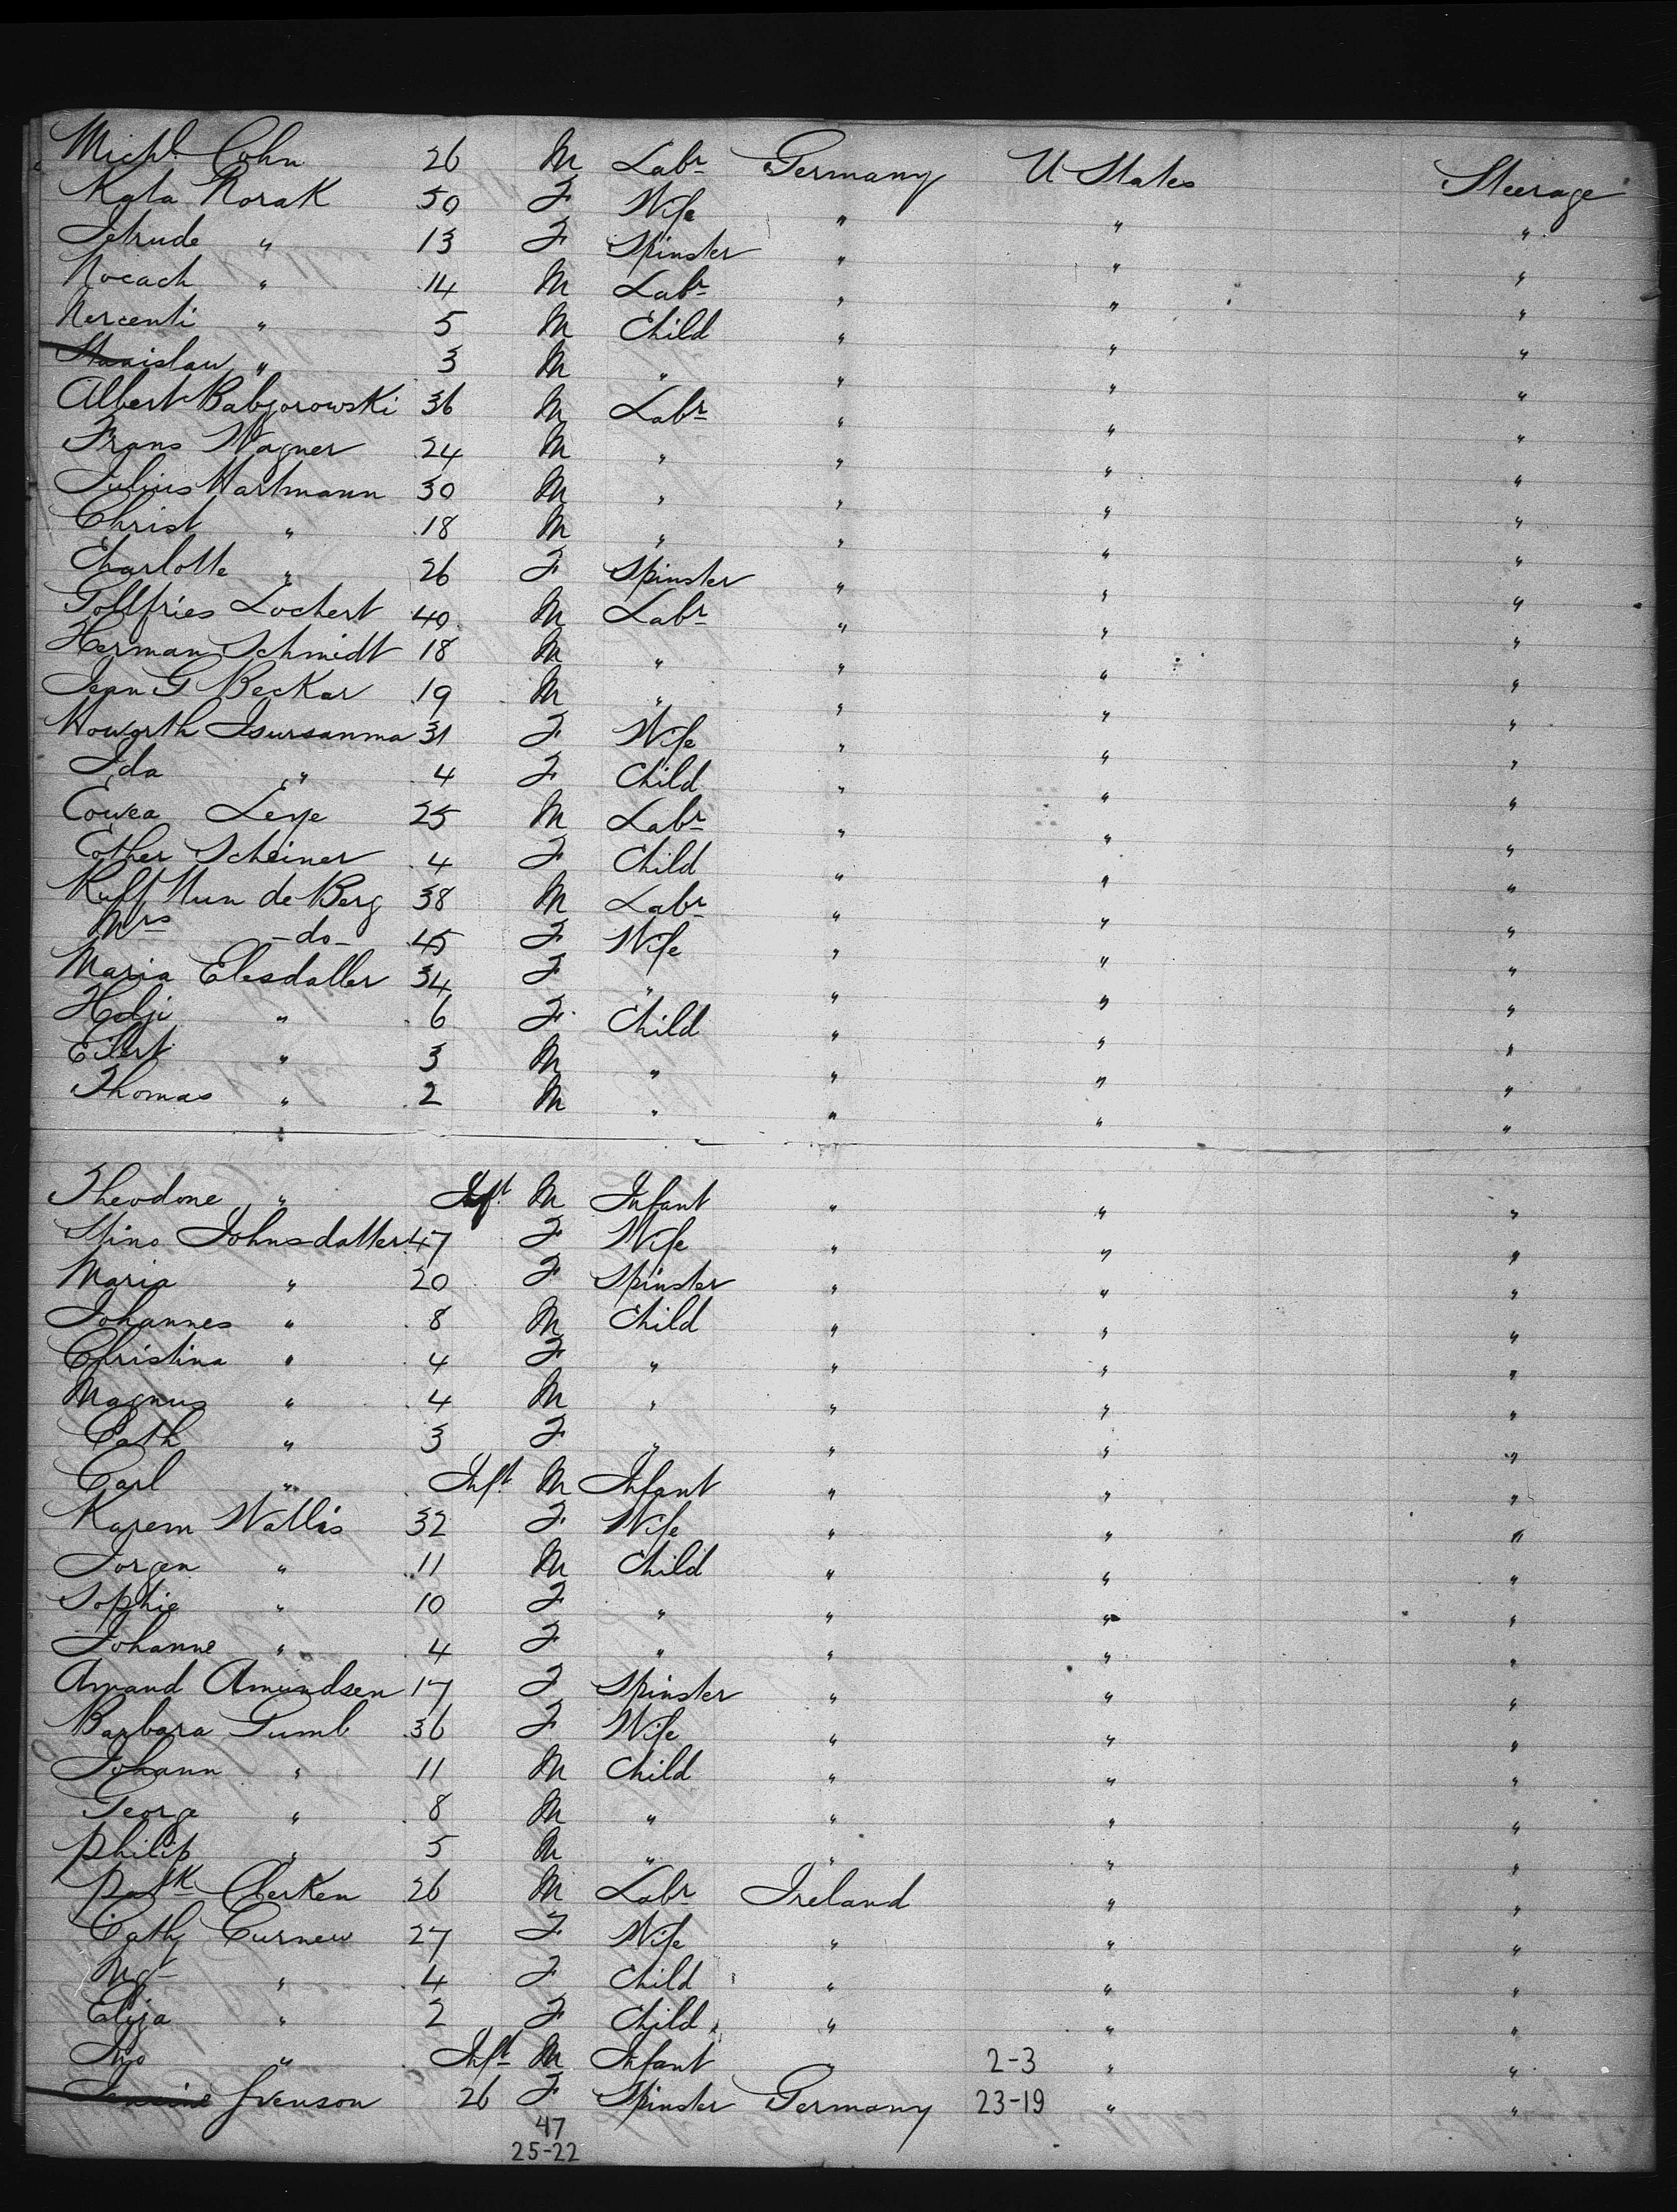 Michl Cohn 26 M Labr Germany U States Steerage
Kata Norak 50 F Wife " " "
Jetrude " 13 F Spinster " " "
Nocach " 14 M Labr " " "
Nercenti " 5 M Child " " "
Stanislaw " 3 M " " " "
Albert Babjorowski 36 M Labr " " "
Frans Wagner 24 M " " " "
Julius Hartmann 30 M " " " "
Christ " 18 M " " " "
Charlotte " 26 F Spinster " " "
Gottfries Lochert 40 M Labr " " "
Herman Schmidt 18 M " " " "
Jean G Beckar 19 M " " " "
Howarth Isursanma 31 F Wife " " "
Ida " 4 F Child " " "
Eowea Leye 25 M Labr " " "
Esther Scheiner 4 F Child " " "
Kuft Nun de Berg 38 M Labr " " "
Mrs -do- 45 F Wife " " "
Maria Elesdatter 34 F " " " "
Helji " 6 F Child " " "
Eilert " 3 M " " " "
Thomas " 2 M " " " "
Theodone " Inft M Infant " " "
Stino Johnsdatter 47 F Wife " " "
Maria " 20 F Spinster " " "
Johannes " 8 M Child " " "
Christina " 4 F " " " "
Magnus " 4 M " " " "
Cath " 3 F " " " "
Carl " Inft M Infant " " "
Karem Wallis 32 F Wife " " "
Jorgen " 11 M Child " " "
Sophie " 10 F " " " "
Johanne " 4 F " " " "
Amand Amundsen 17 F Spinster " " "
Barbara Gumb 36 F Wife " " "
Johann " 11 M Child " " "
George " 8 M " " " "
Philip " 5 M " " " "
Patk Clerken 26 M Labr Ireland " "
Cath Curnew 27 F Wife " " "
Mgt " 4 F Child " " "
Eliza " 2 F Child " " "
Tho " Inft M Infant " 2-3 " "
Svenson 26 F Spinster Germany 23-19 " "
47
25-22